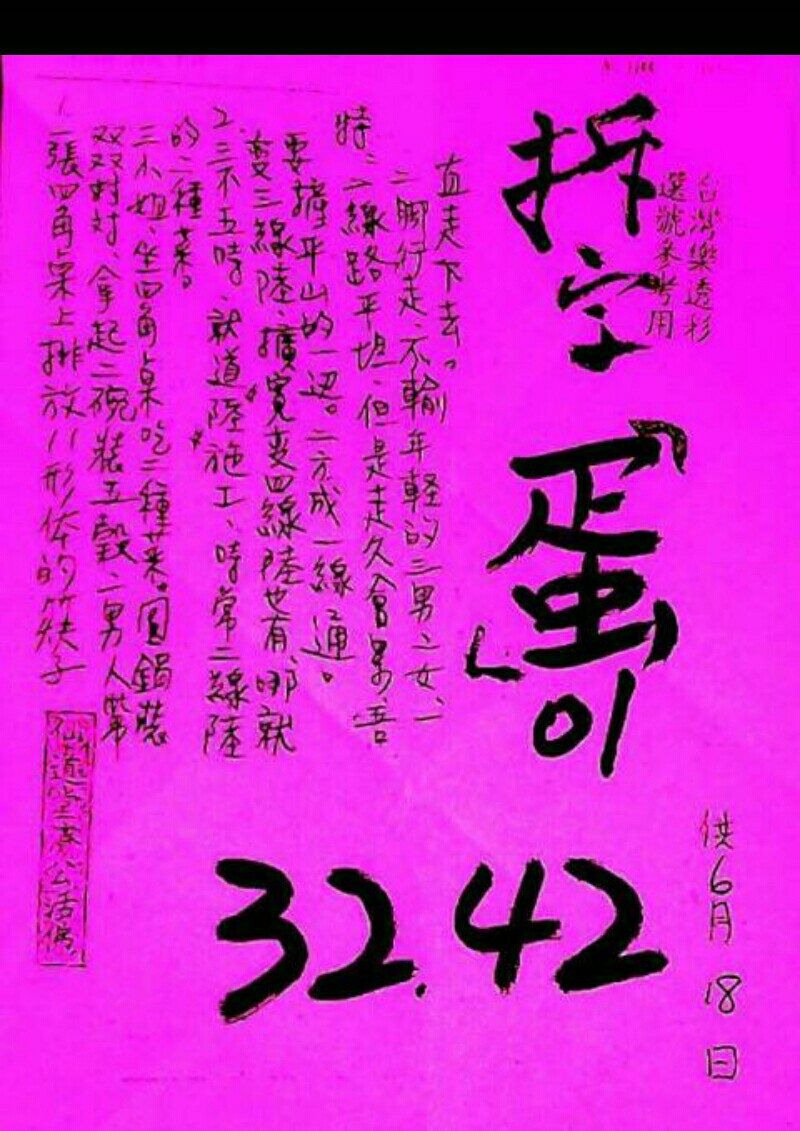 台灣樂透彩
選號參考用
拆字「蛋」01
供6月18日
32.42
1.一張四角桌上排放八形体的筷子
双双對対、拿起二碗裝五穀二男人幫
三小姐、坐四角桌吃二種菜。圓鍋裝
的二種菜。
2.三不五時、就道陸施工、時常二線陸
变三線陸、擴寬变四線陸也有、哪就
要撞平山的一辺。二方成一線通。
特:二線路平坦、但是走久會累、吾
二脚行走、不輸年輕的三男二女、一
直走下去。
仙道堂濟公活佛